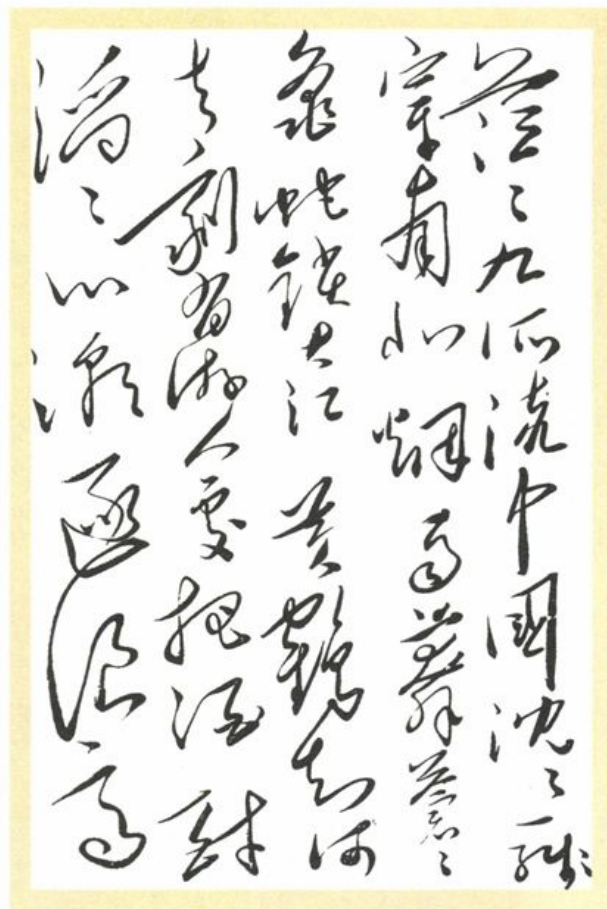 茫々九派流中國沈々一綫
穿南北 煙雨莽蒼々
龜蛇鎖大江 黃鶴知何
去剩有游人處把酒酹
滔々心潮逐浪高